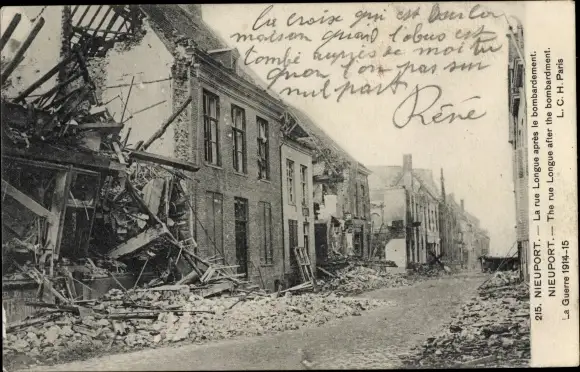 La croix qui est sur la
maison quand l'obus est
tombé auprès de moi tu
quon l'on pas sur
nul part
Réné
215. NIEUPORT. — La rue Longue après le bombardement.
NIEUPORT. — The rue Longue after the bombardment.
La Guerre 1914-15
L. C. H. Paris